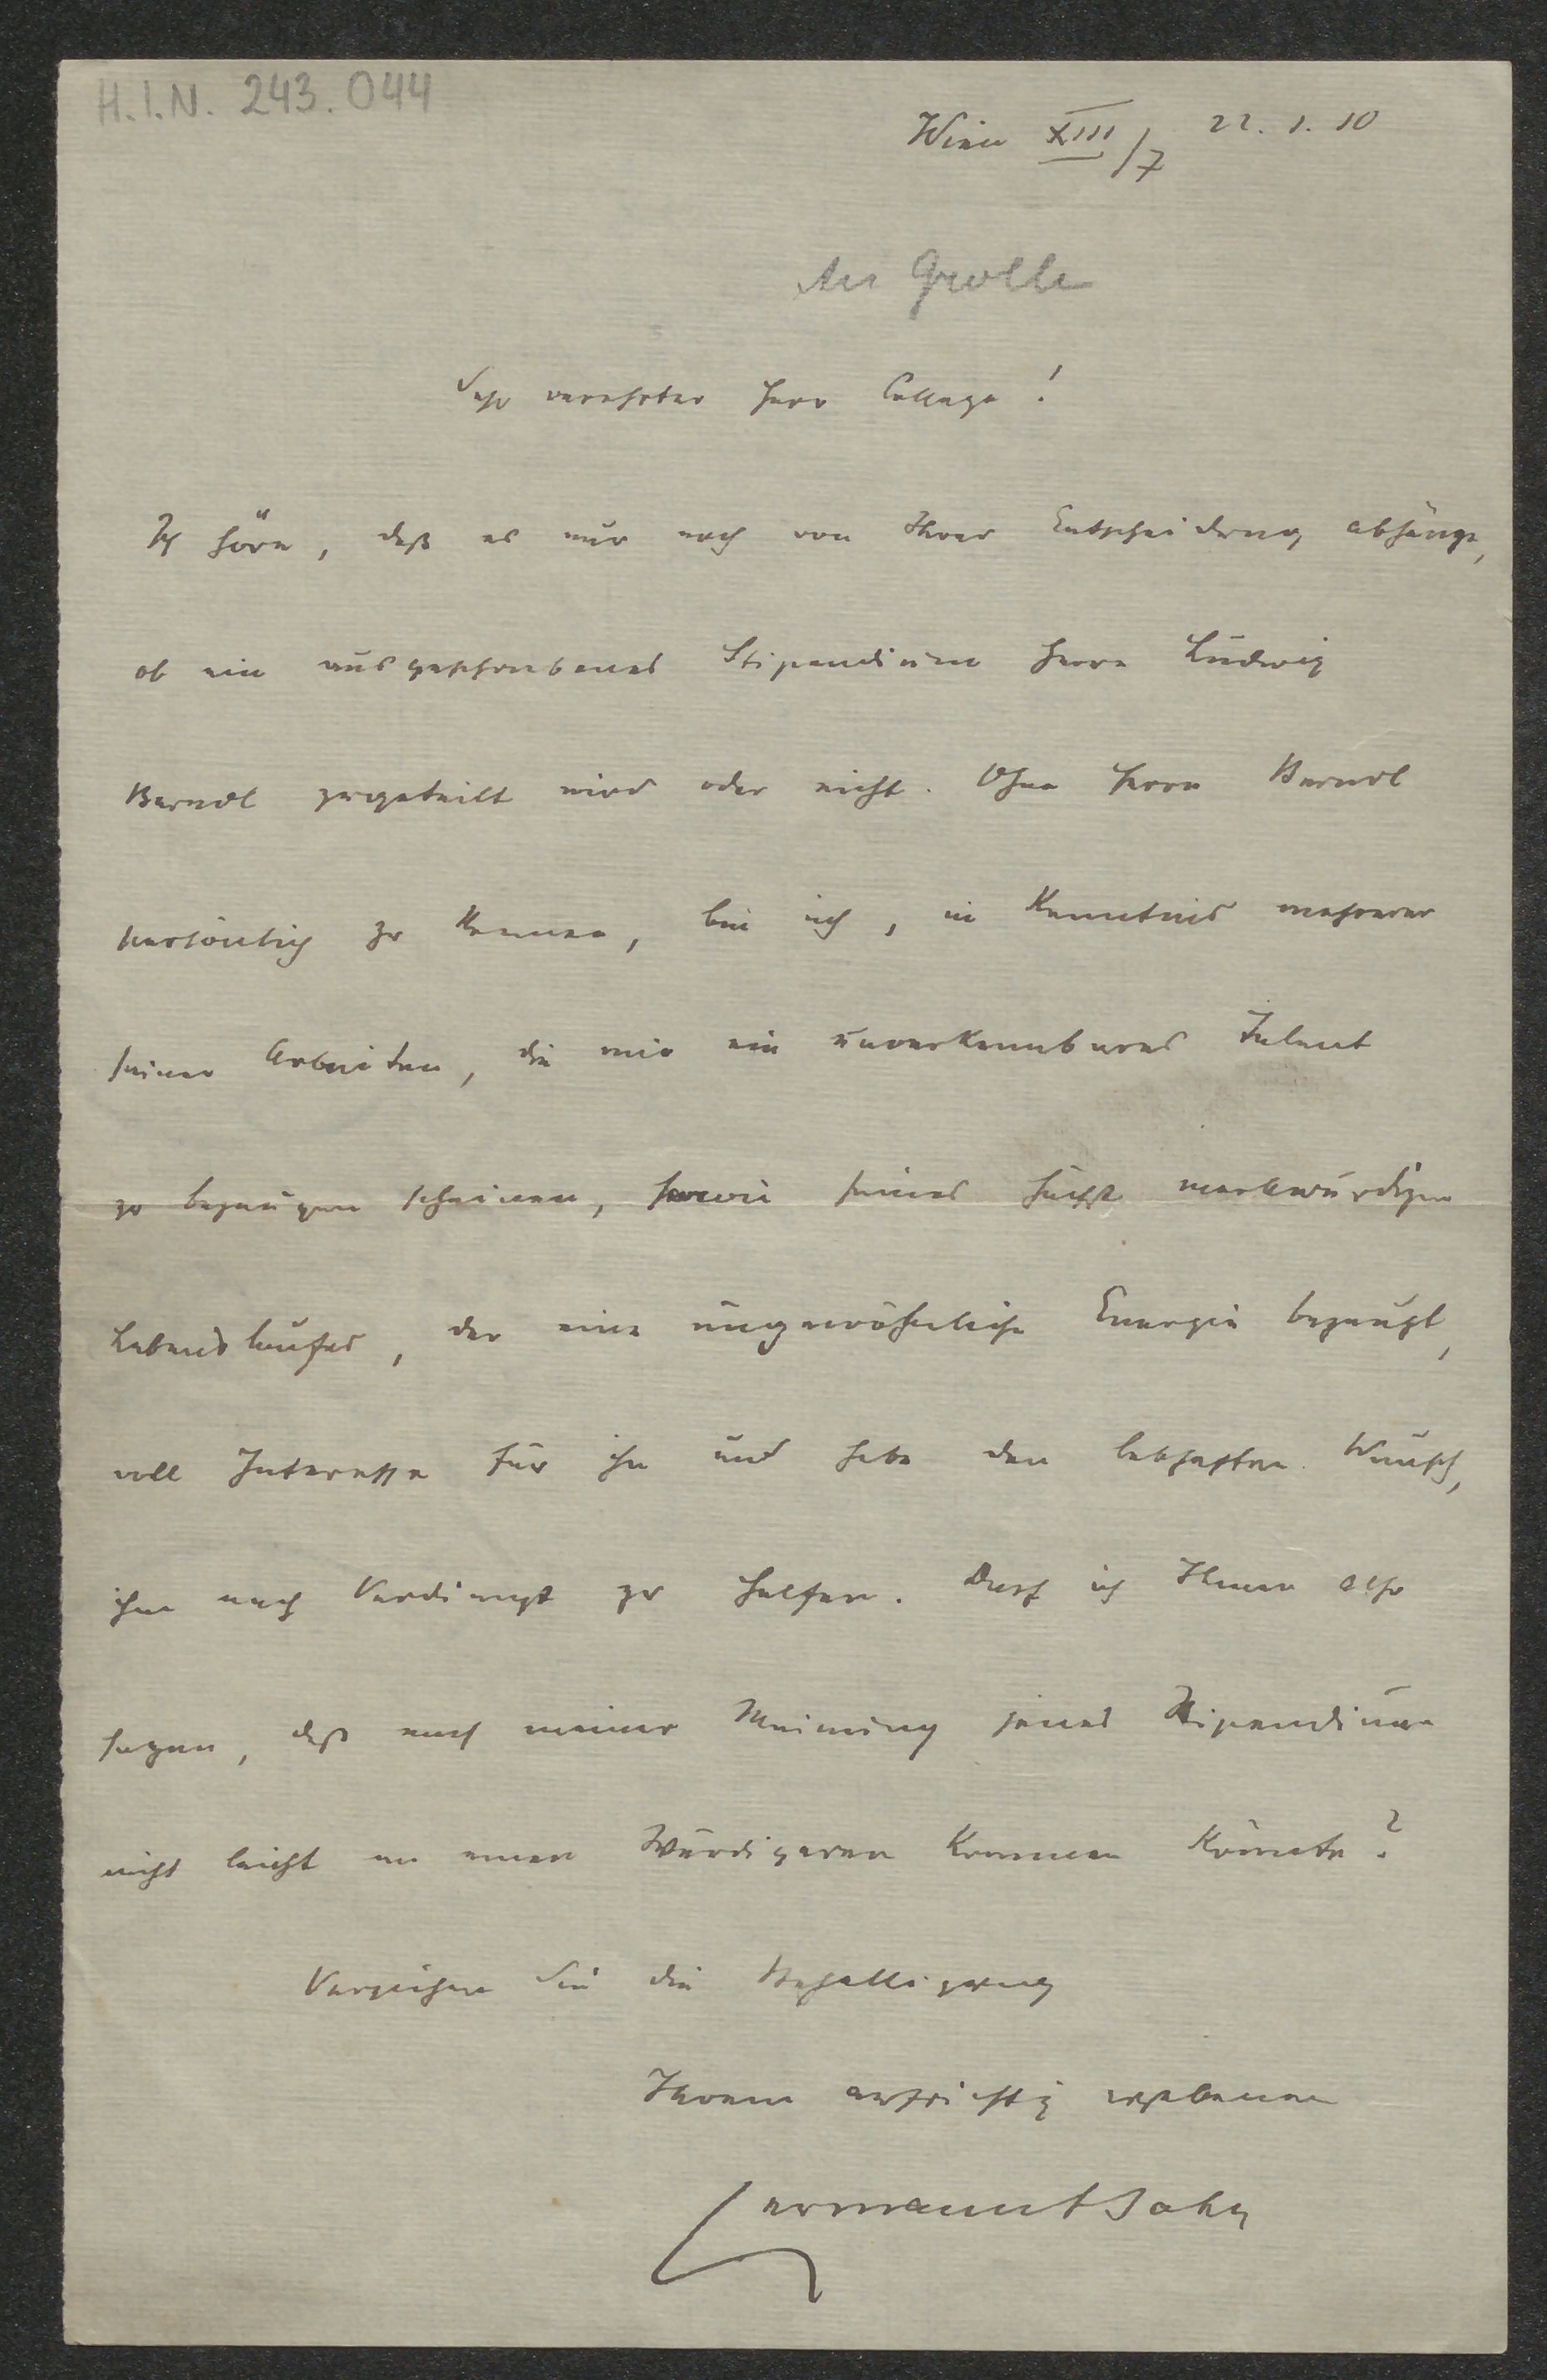 H.I.N. 243.044
Wien XIII/7 22. 1. 10
An Grolle
Sehr verehrter Herr College!
Ich höre, daß es nur noch von Ihrer Entscheidung abhänge,
ob ein ausgeschriebenes Stipendium Herrn Ludwig
Berndl zugeteilt wird oder nicht. Ohne Herrn Berndl
persönlich zu kennen, bin ich, in Kenntnis mehrerer
seiner Arbeiten, die mir ein unverkennbares Talent
zu bezeugen scheinen, sowie seines höchst merkwürdigen
Lebenslaufes, der eine ungewöhnliche Energie bezeugt,
voll Interesse für ihn und habe den lebhaften Wunsch,
ihm nach Verdienst zu helfen. Darf ich Ihnen also
sagen, daß nach meiner Meinung jenes Stipendium
nicht leicht an einen Würdigeren kommen könnte?
Verzeihen Sie die Behelligung
Ihrem aufrichtig ergebenen
HermannBahr